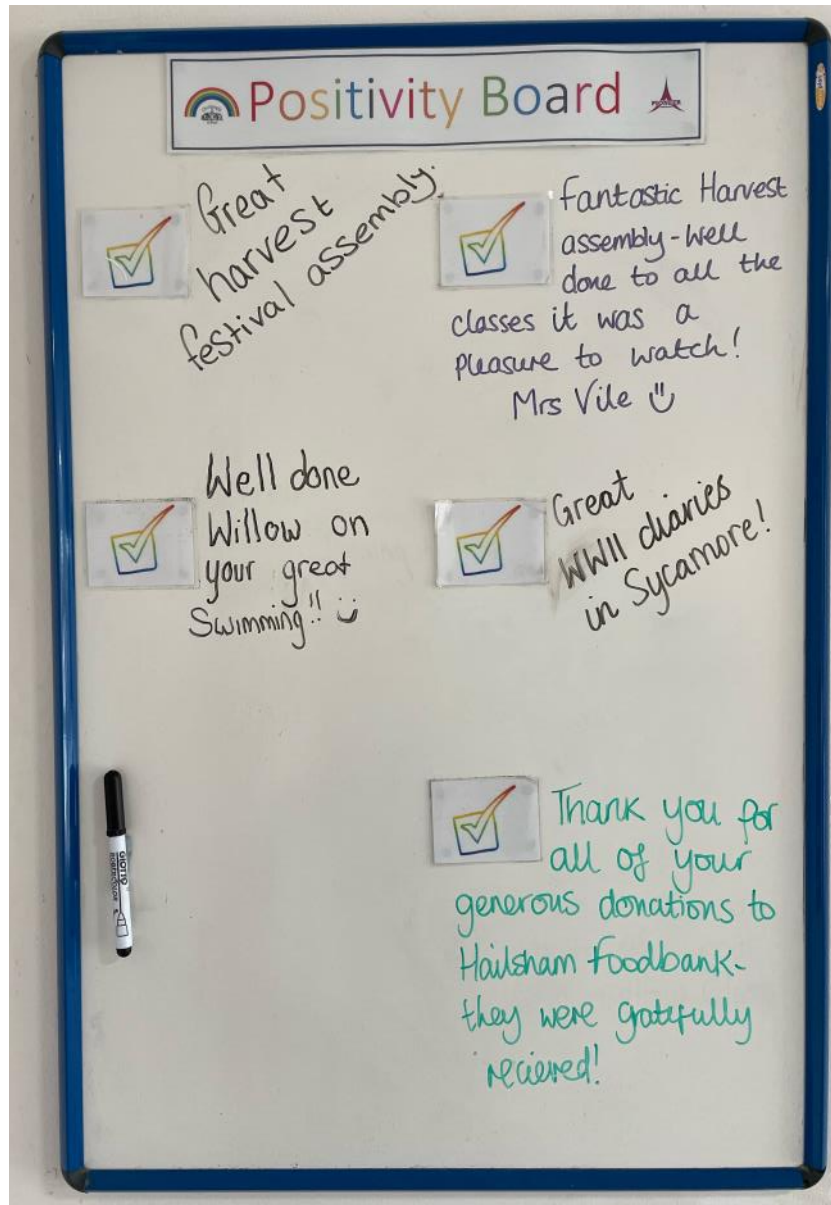 Positivity Board
Great
harvest
festival assembly.
Fantastic Harvest
assembly-Well
done to all the
classes it was a
pleasure to watch!
Mrs Vile
Well done
Willow on
your great
Swimming!!
Great
WWII diaries
in Sycamore!
Thank you for
all of your
generous donations to
Hailsham Foodbank-
they were gratefully
recieved!
GIOTTO